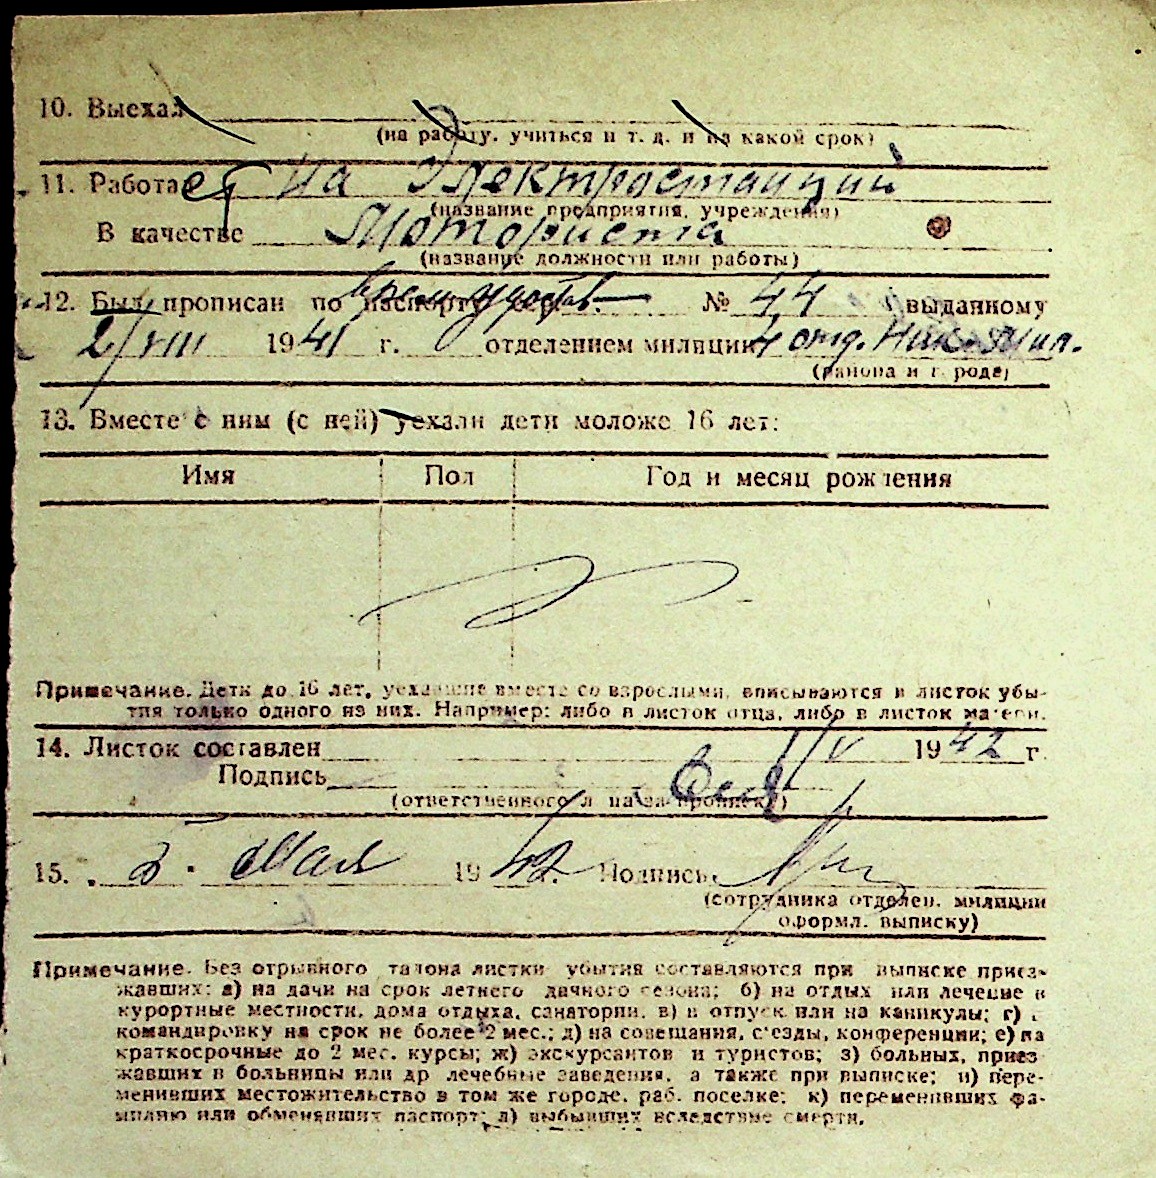 10. Выехал
(на работу, учиться и т. д. и на какой срок)
11. Работает на Электростанции
(название предприятия, учреждения)
В качестве Моториста
(название должности или работы)
12. Был прописан по паспорту врем. удостов. № 44 выданному
2/VIII 1941 г. отделением милиции 4 отд. Ник. мил.
(района и города)
13. Вместе с ним (с ней) уехали дети моложе 16 лет:
Имя Пол Год и месяц рождения
Примечание. Дети до 16 лет, уехавшие вместе со взрослыми, вписываются в листок убы-
тия только одного из них. Например: либо в листок отца, либо в листок матери.
14. Листок составлен 1/V 1942 г.
Подпись
(ответственного л на за прописку)
15. 3 • Мая 1942 г. Подпись
(сотрудника отделен. милиции
оформл. выписку)
Примечание. Без отрывного талона листки убытия составляются при выписке приез-
жавших: а) на дачи на срок летнего дачного сезона; б) на отдых или лечение в
курортные местности, дома отдыха, санатории, в) в отпуск или на каникулы; г) в
командировку на срок не более 2 мес.; д) на совещания, съезды, конференции; е) на
краткосрочные до 2 мес. курсы; ж) экскурсантов и туристов; з) больных, приез
жавших в больницы или др лечебные заведения, а также при выписке; и) пере-
менивших местожительство в том же городе, раб. поселке; к) переменивших фа-
милию или обменявших паспорт; л) выбывших вследствие смерти.